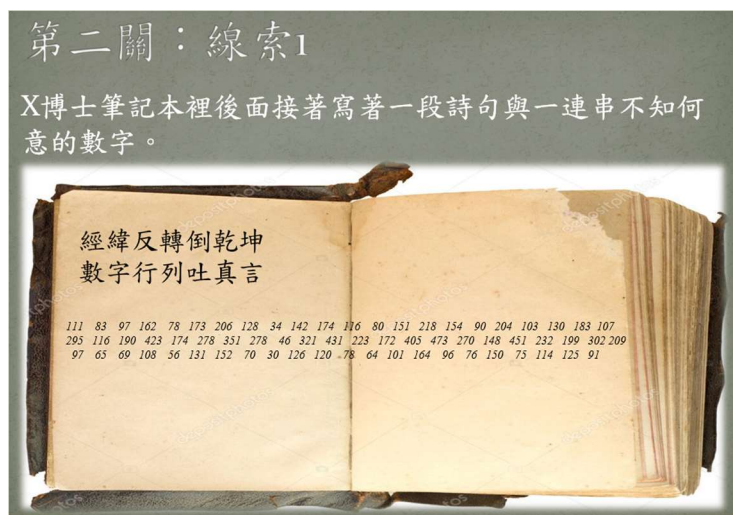 第二關：線索1
X博士筆記本裡後面接著寫著一段詩句與一連串不知何
意的數字。
經緯反轉倒乾坤
數字行列吐真言
111 83 97 162 78 173 206 128 34 142 174 116 80 151 218 154 90 204 103 130 183 107
295 116 190 423 174 278 351 278 46 321 431 223 172 405 473 270 148 451 232 199 302 209
97 65 69 108 56 131 152 70 30 126 120 78 64 101 164 96 76 150 75 114 125 91